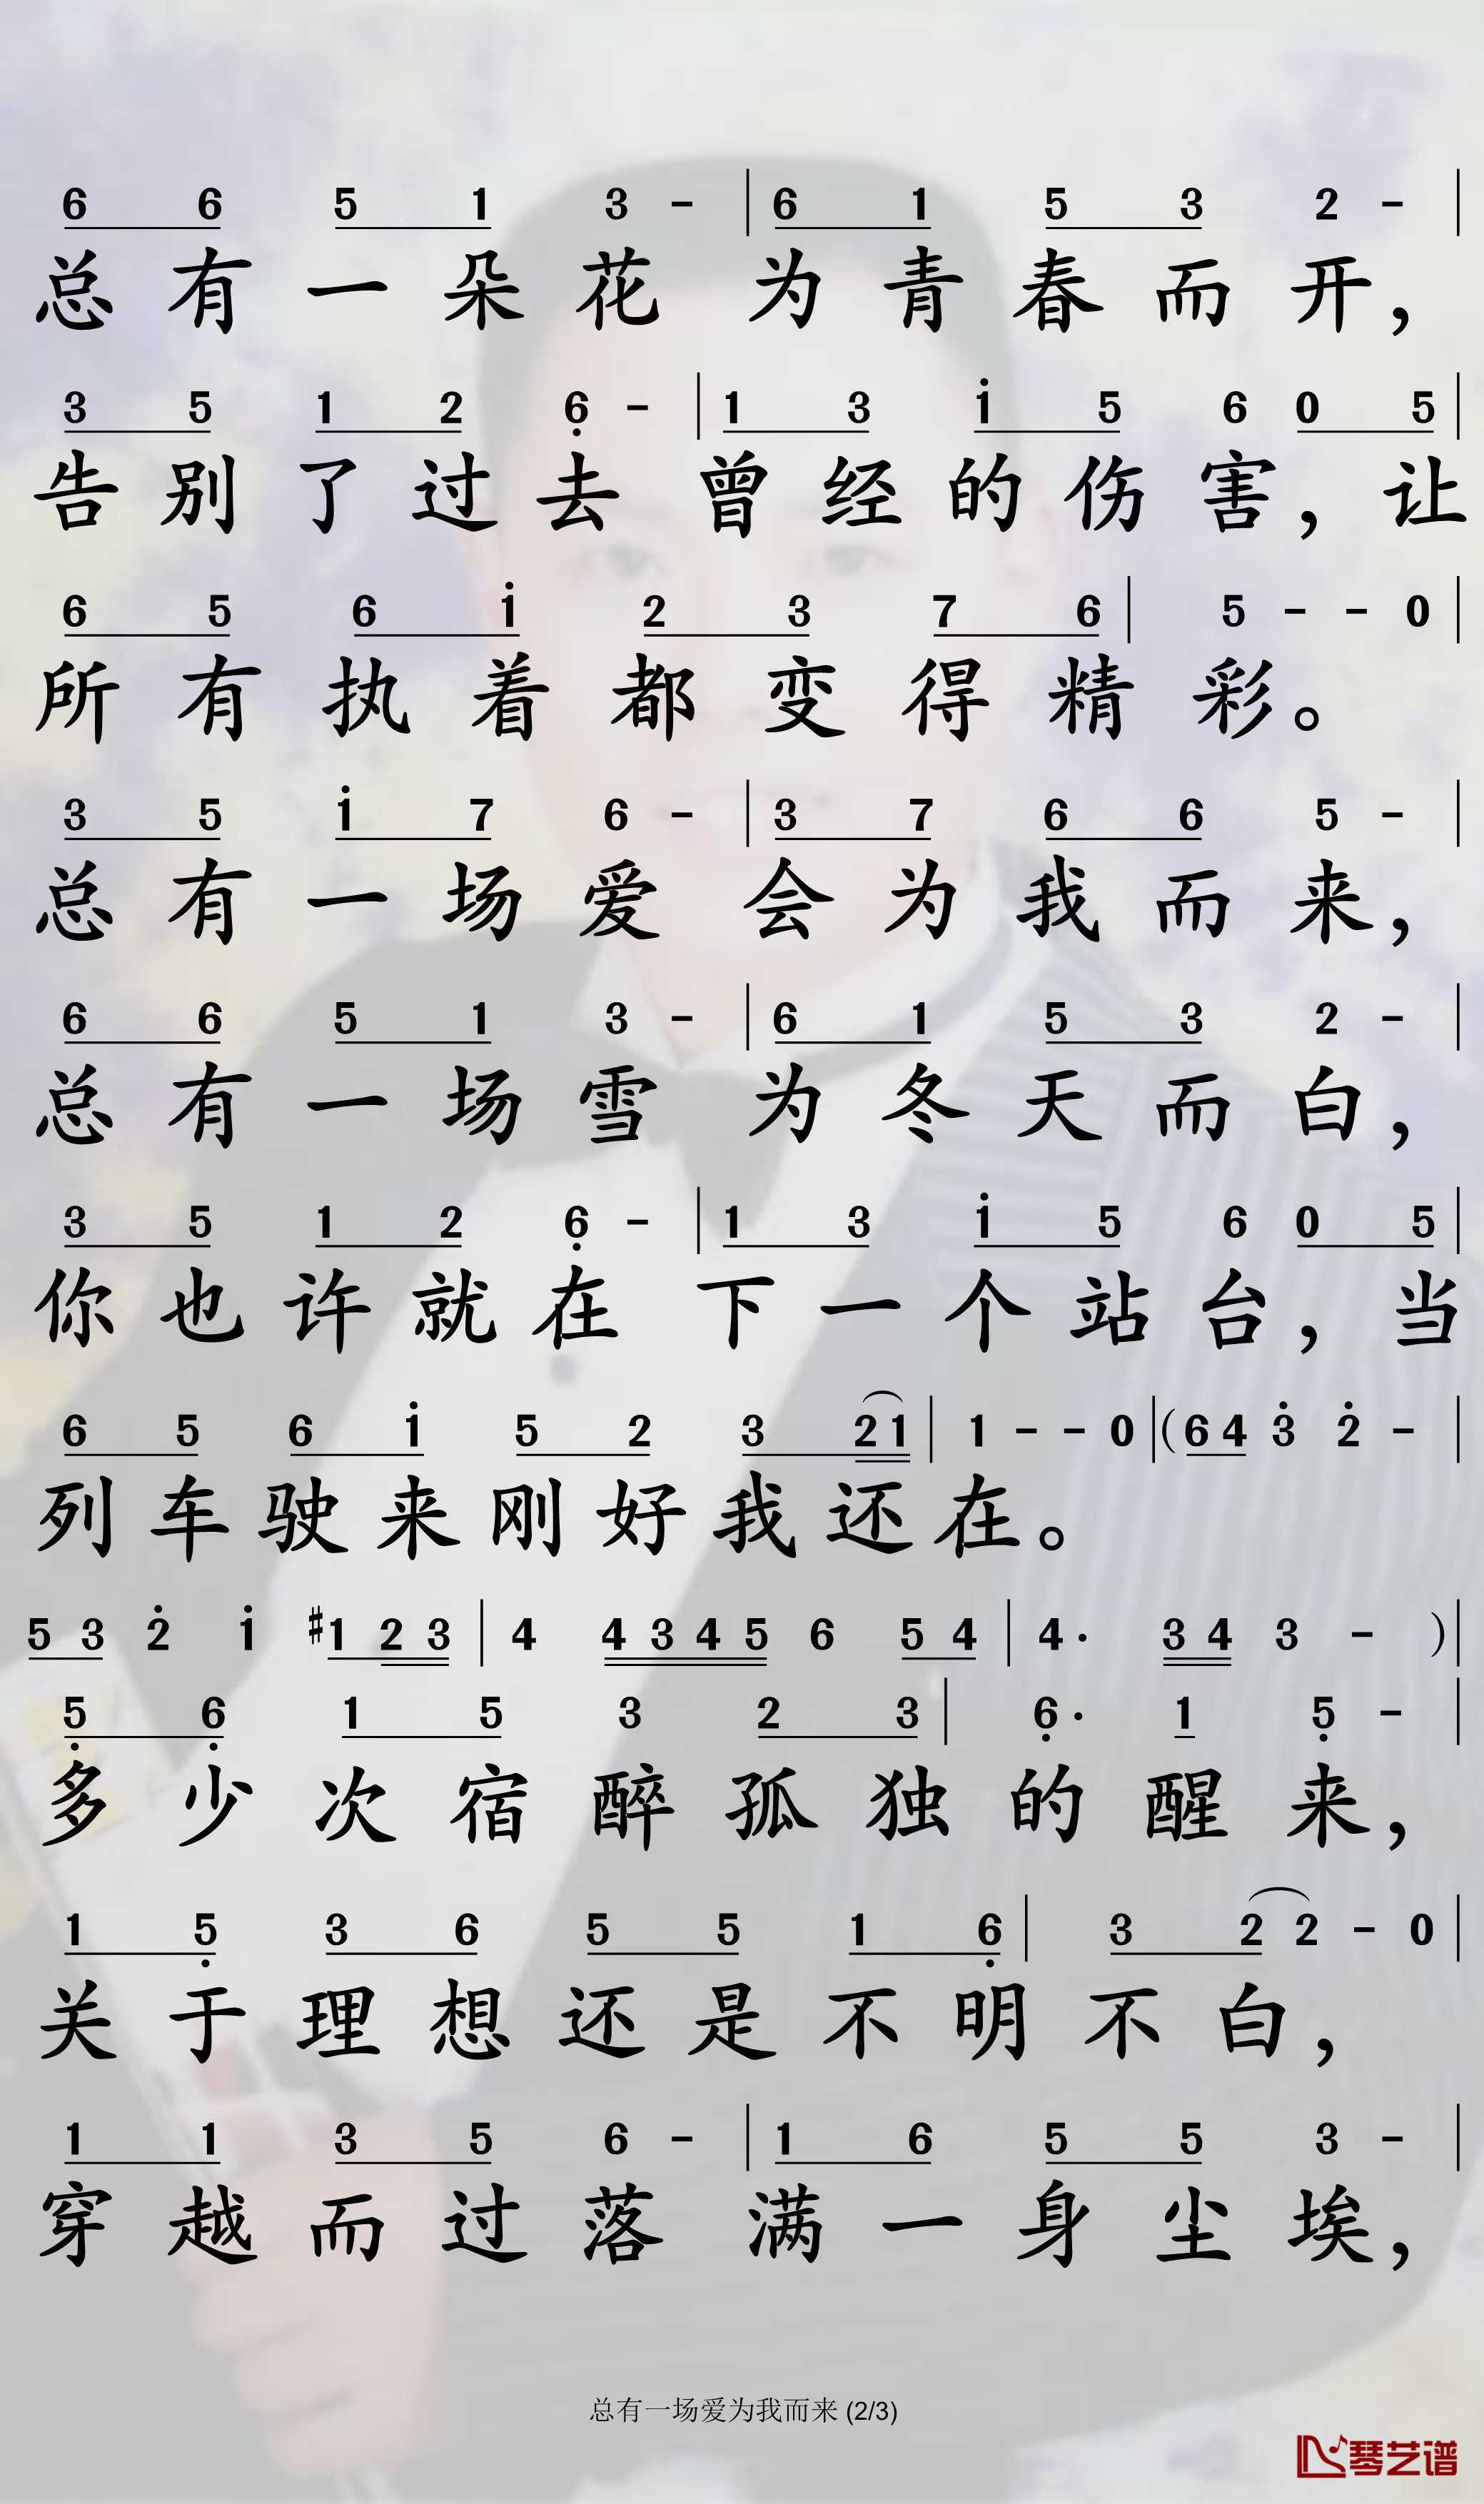 6 6 5 1 3 - | 6 1 5 3 2 - |
总有一朵花 为青春而开，
3 5 1 2 6̣ - | 1 3 1̇ 5 6 0 5 |
告别了过去 曾经的伤害，让
6 5 6 1̇ 2 3 7 6 | 5 - - 0 |
所有执着都变得精彩。
3 5 1̇ 7 6 - | 3 7 6 6 5 - |
总有一场爱 会为我而来，
6 6 5 1 3 - | 6 1 5 3 2 - |
总有一场雪 为冬天而白，
3 5 1 2 6̣ - | 1 3 1̇ 5 6 0 5 |
你也许就在 下一个站台，当
6 5 6 1̇ 5 2 3 2 1 | 1 - - 0 | ( 6 4 3̇ 2̇ - |
列车驶来刚好我还在。
5 3 2̇ 1̇ #1 2 3 | 4 4 3 4 5 6 5 4 | 4· 3 4 3 - ) |
5̣ 6̣ 1 5 3 2 3 | 6̣· 1 5̣ - |
多少次宿醉孤独的醒来，
1 5̣ 3 6 5 5 1 6̣ | 3 2 2 - 0 |
关于理想还是不明不白，
1 1 3 5 6 - | 1 6 5 5 3 - |
穿越而过落 满一身尘埃，
总有一场爱为我而来 (2/3)
琴艺谱